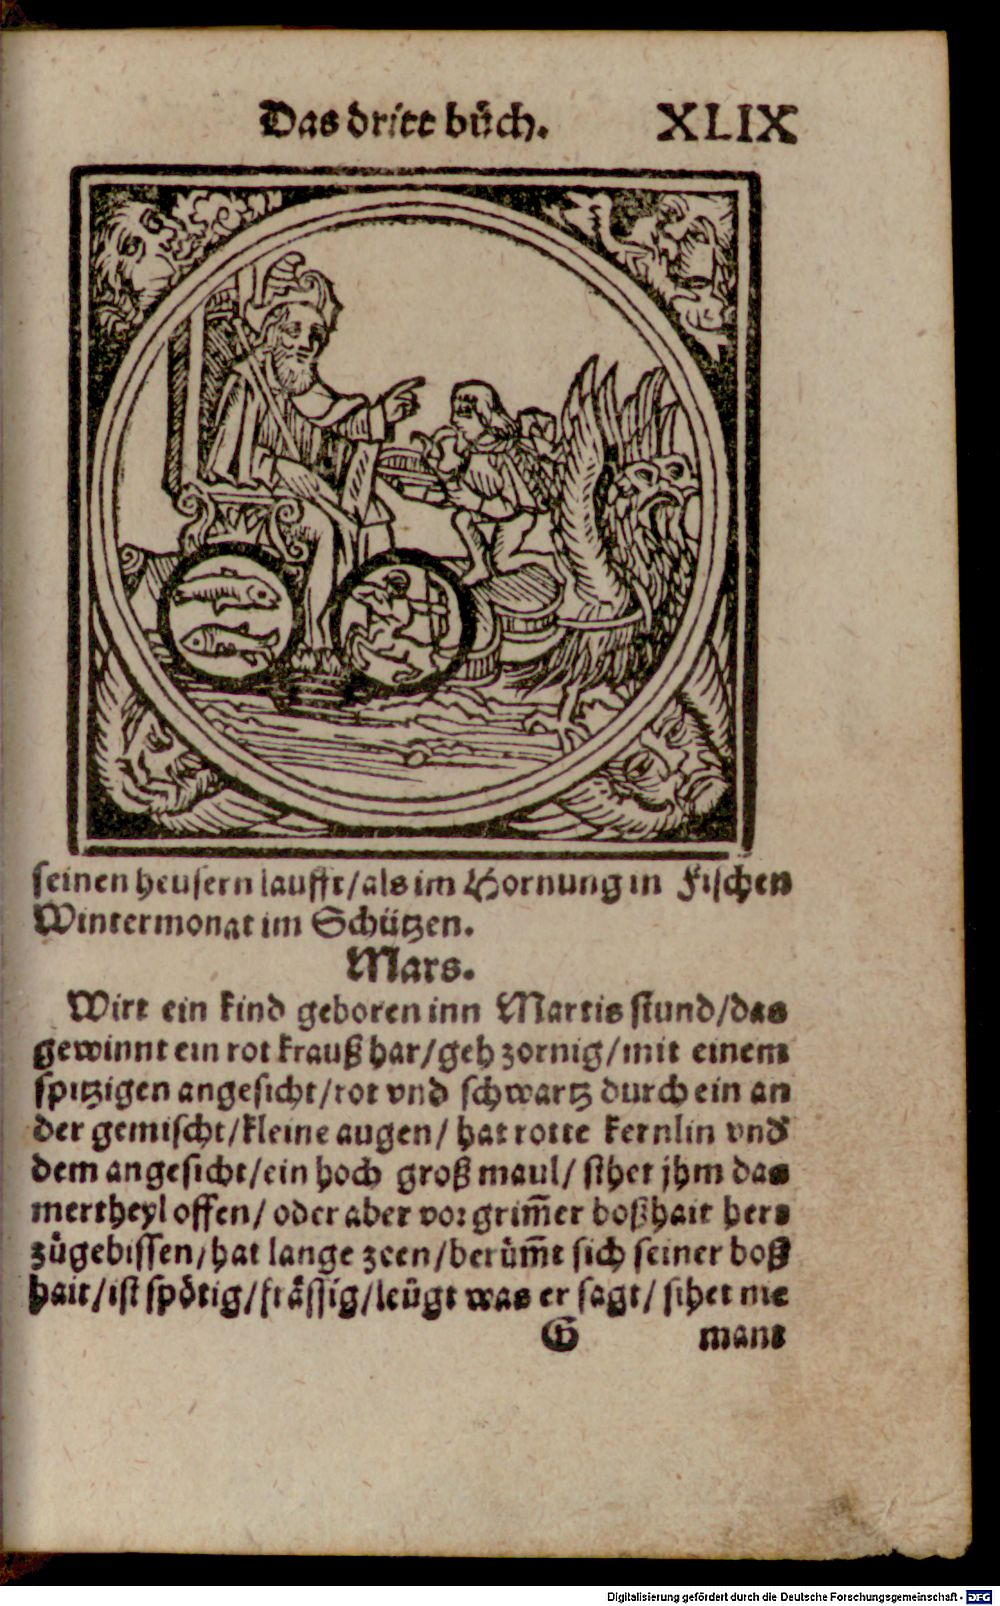 Das dritt bůch. XLIX
seinen heusern laufft/als im Hornung in Fischen
Wintermonat im Schützen.
Mars.
Wirt ein kind geboren inn Martis stund/das
gewinnt ein rot krauß har/geh zornig/mit einem
spitzigen angesicht/rot vnd schwartz durch ein an
der gemischt/kleine augen/ hat rotte kernlin vnd
dem angesicht/ein hoch groß maul/ sihet jhm das
mertheyl offen/ oder aber vor grim̃er boßhait herr
zůgebissen/hat lange zeen/berům̃t sich seiner boß
hait/ist spötig/frässig/leügt was er sagt/ sihet nie
G mant
Digitalisierung gefördert durch die Deutsche Forschungsgemeinschaft - DFG